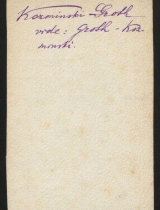 Kozminski-Groth
vide: Groth-Koz
minski.